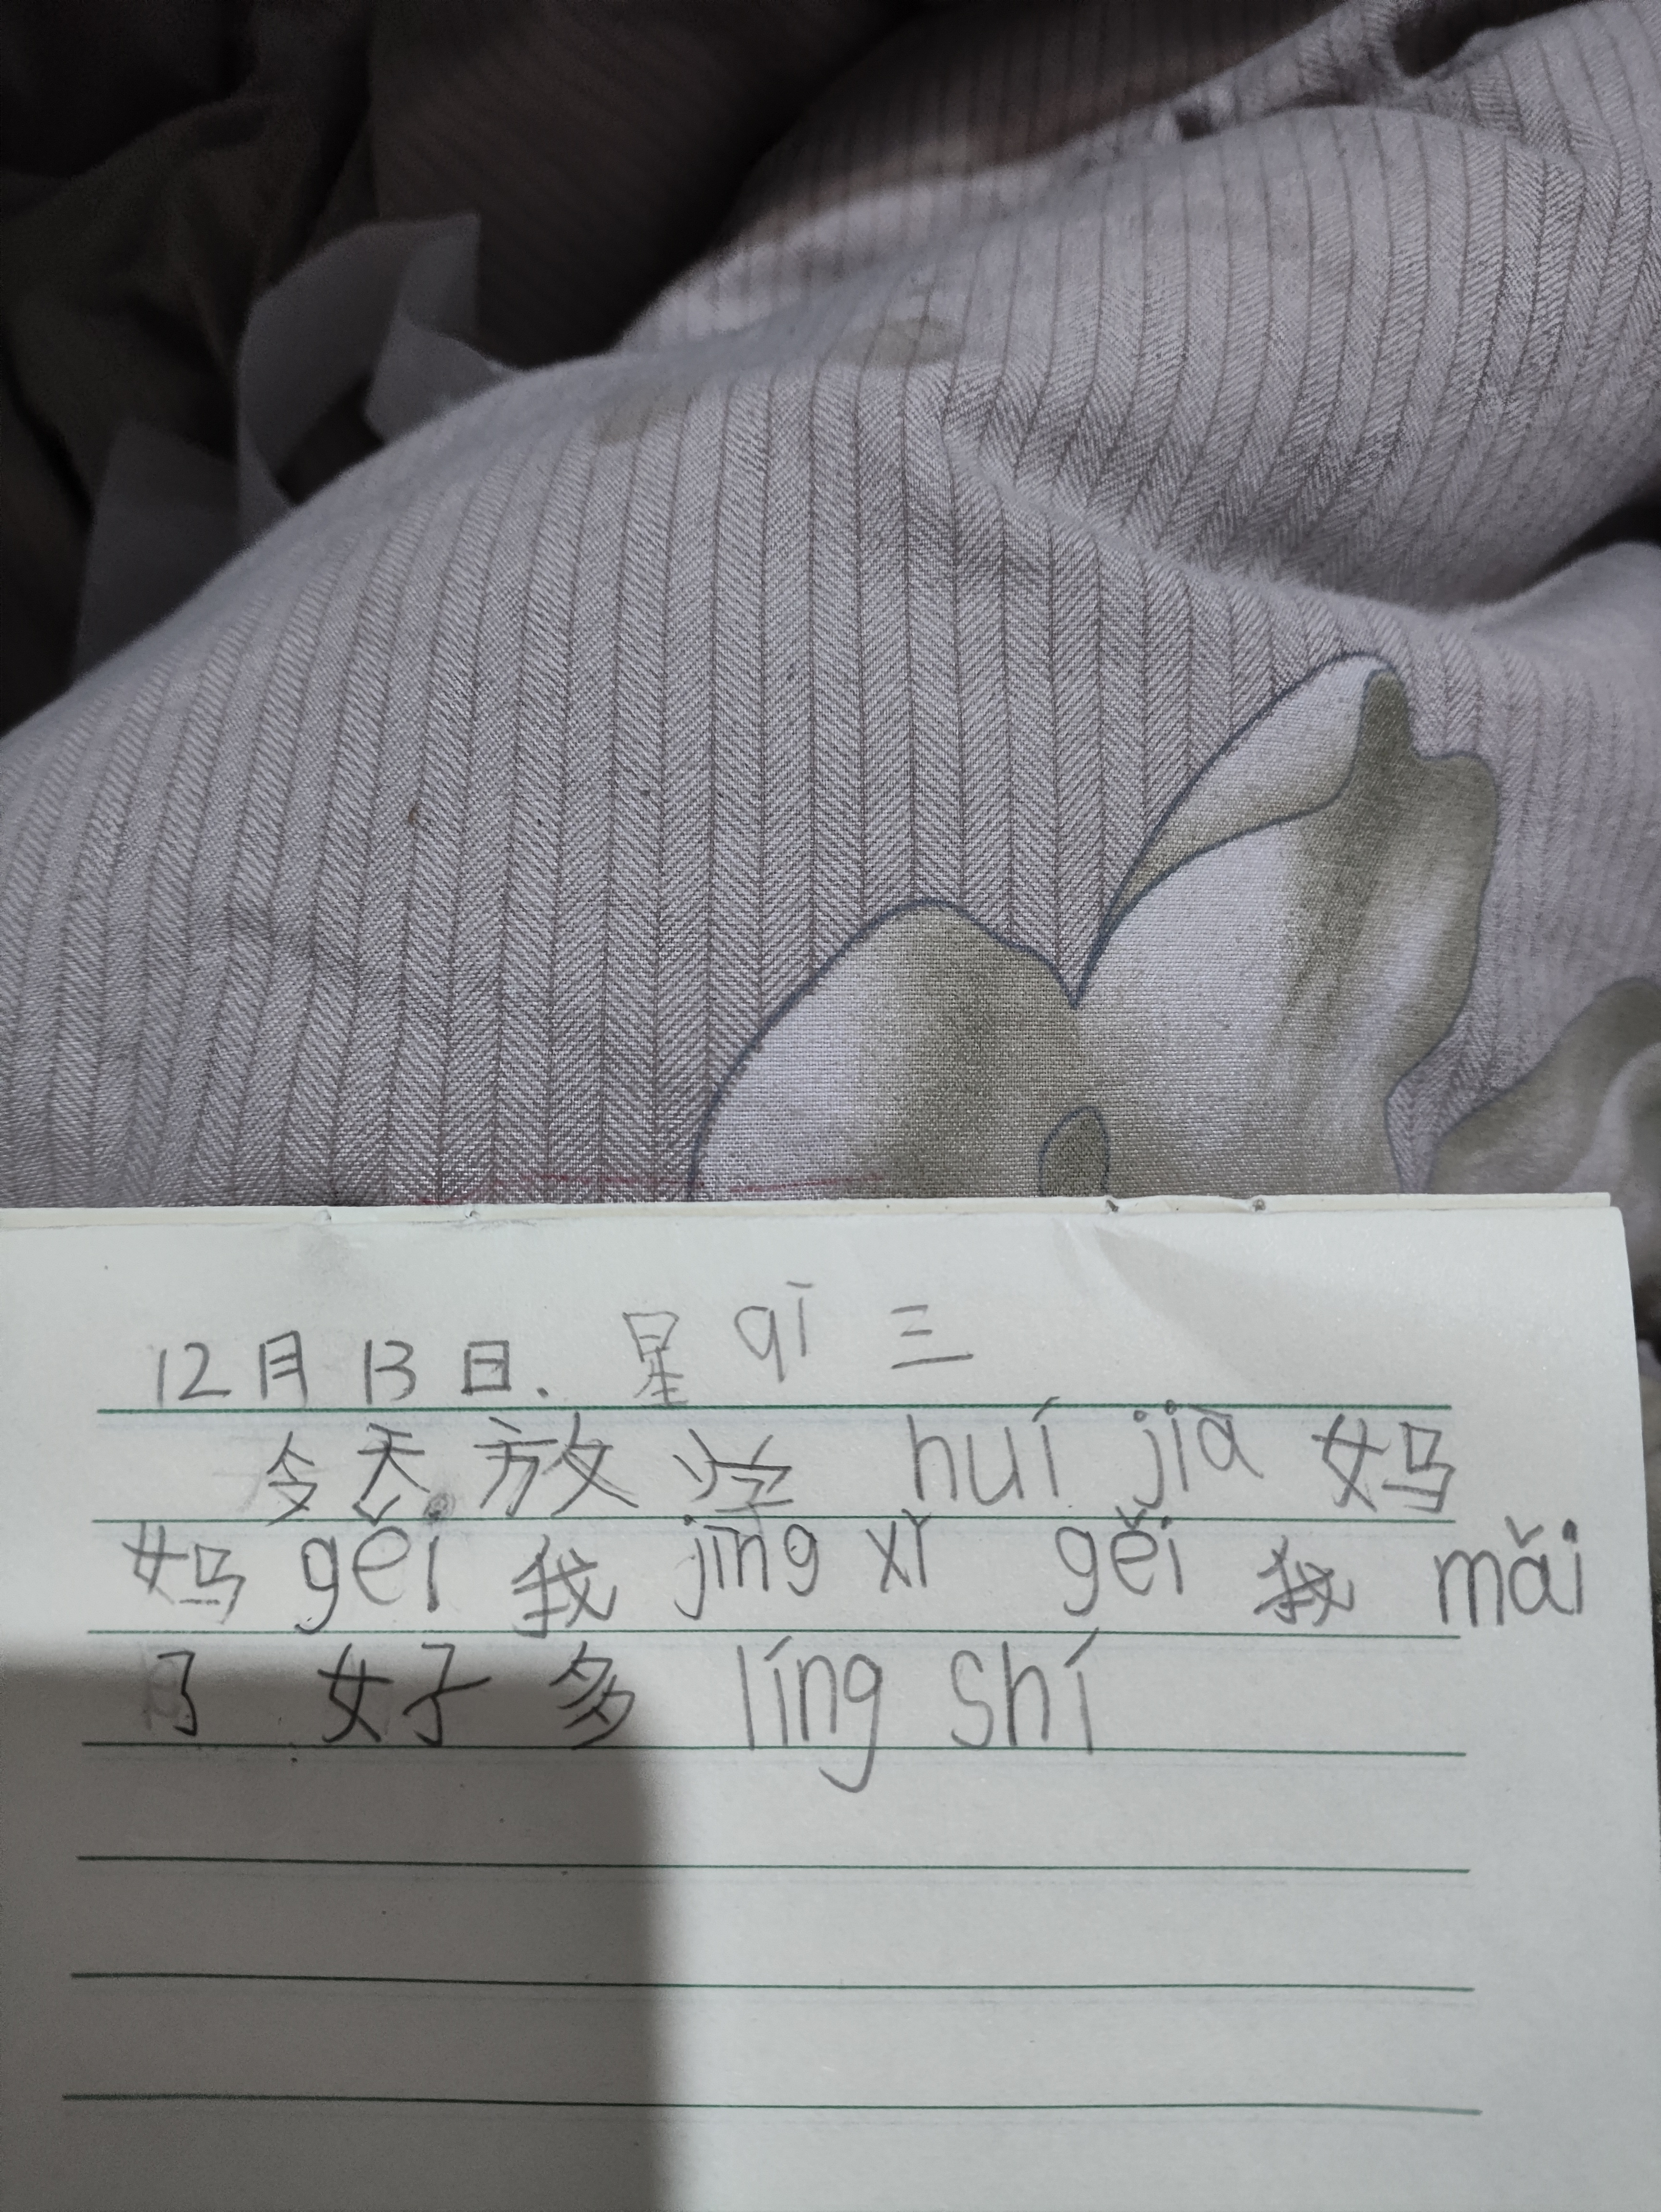 12月13日. 星qī三
今天放学 huí jiā 妈
妈 gěi 我 jīng xǐ gěi 我 mǎi
了 好多 líng shí